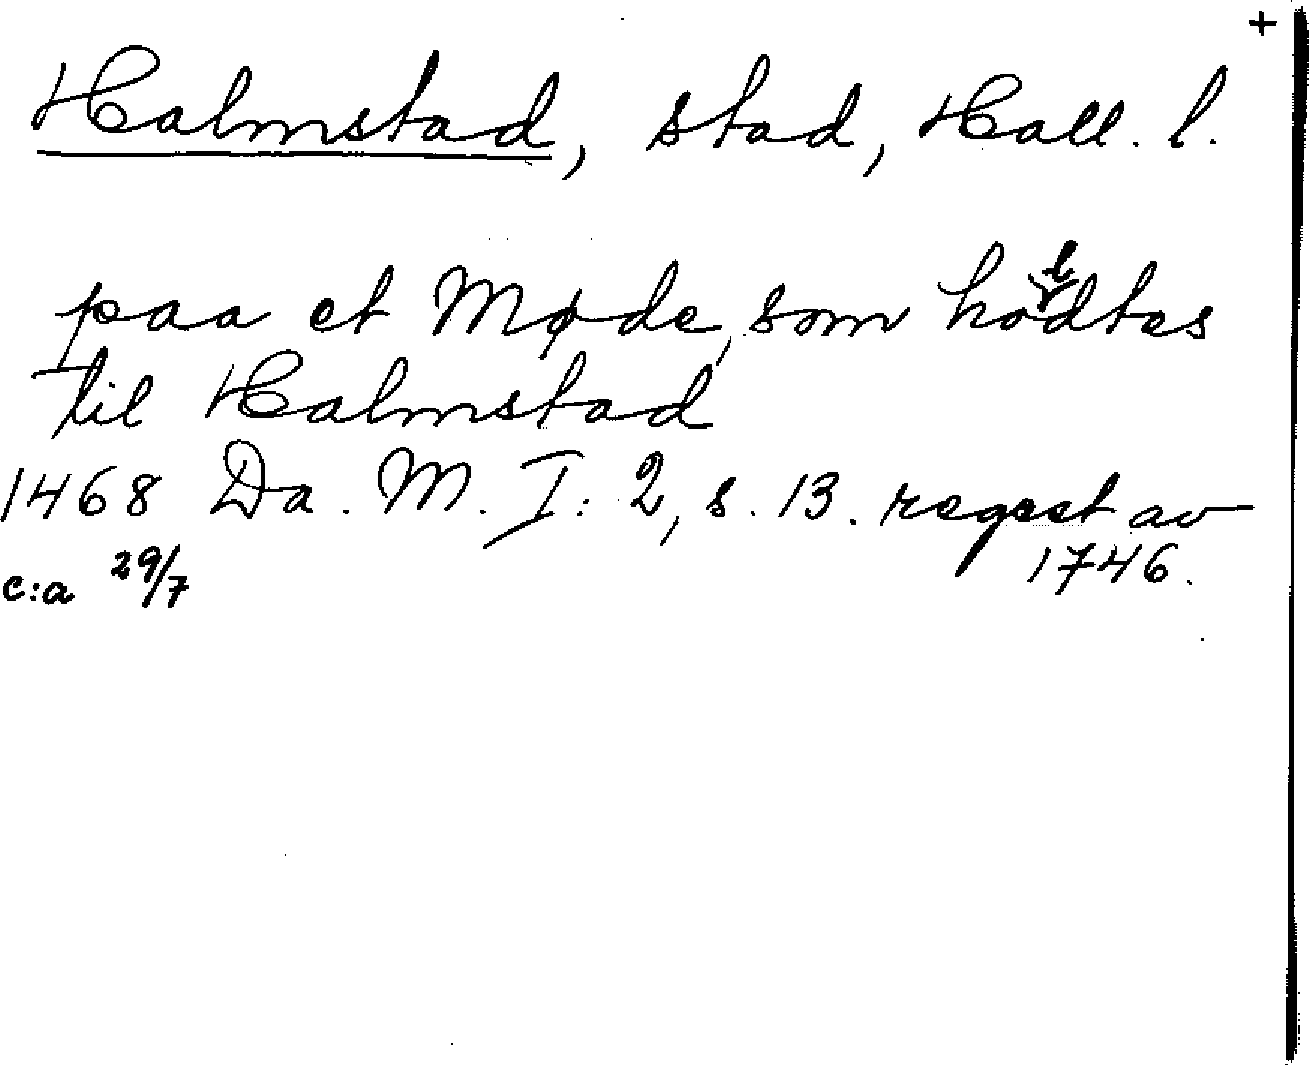 +
Halmstad, stad, Hall. l.
paa et Møde, som holdtes
til Halmstad
1468 Da. M. I: 2, s. 13. regest av
c:a 29/7 1746.